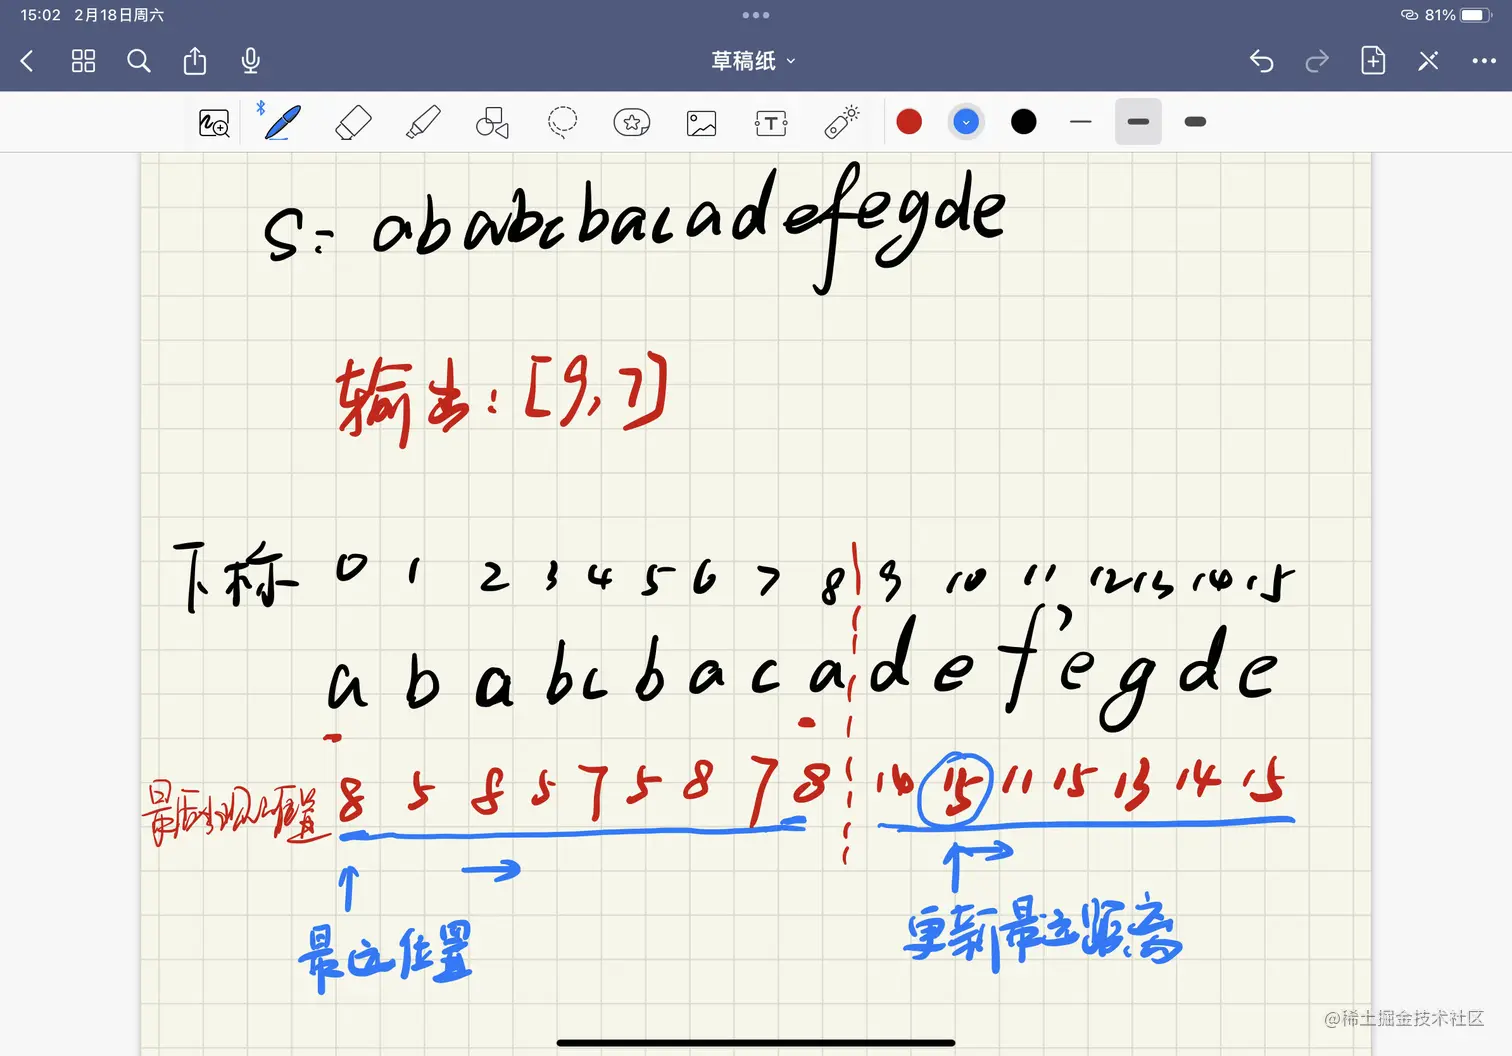 15:02 2月18日周六
81%
草稿纸
T
S: ababcbacadefegde
输出: [9, 7]
下称 0 1 2 3 4 5 6 7 8 9 10 11 12 13 14 15
a b a b c b a c a d e f e g d e
最后出现位置 8 5 8 5 7 5 8 7 8 14 15 11 15 13 14 15
最远位置
更新最远距离
@稀土掘金技术社区